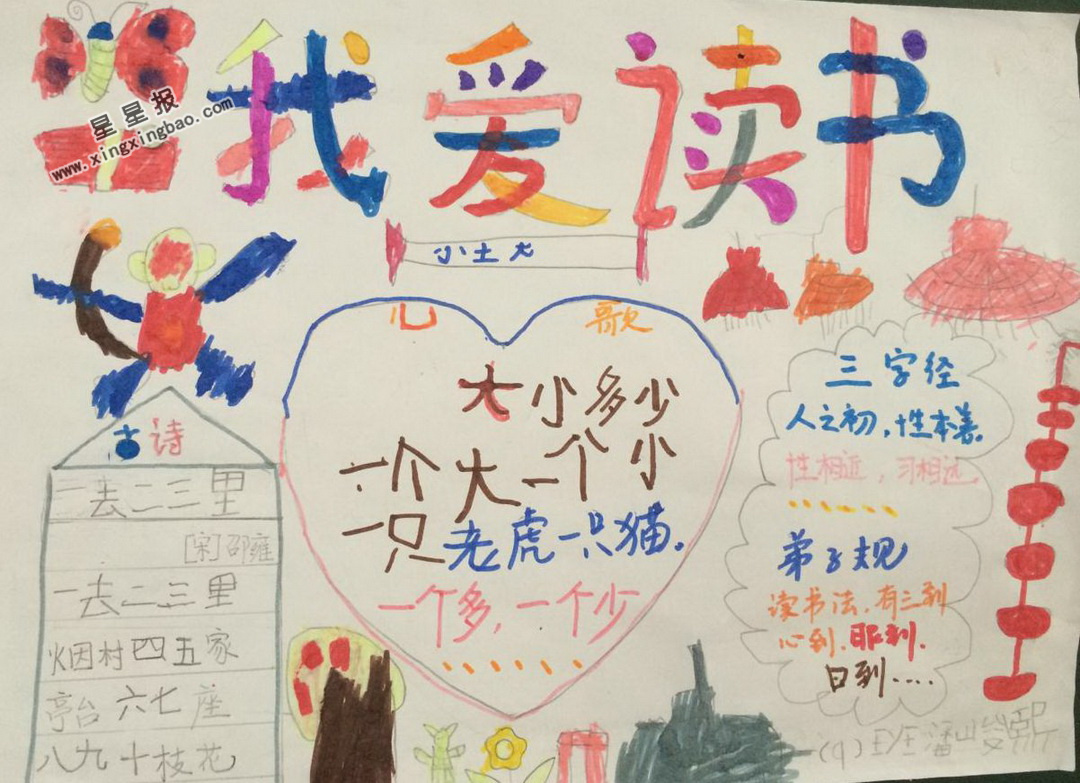 我爱读书
星星报
www.xingxingbao.com
小土大
儿歌
大小多少
一个大一个小
一只老虎一只猫.
一个多,一个少
......
古诗
一去二三里
[宋]邵雍
一去二三里
烟村四五家
亭台六七座
八九十枝花
三字经
人之初,性本善.
性相近,习相远
......
弟子规
读书法.有三到
心到.眼到.
日到....